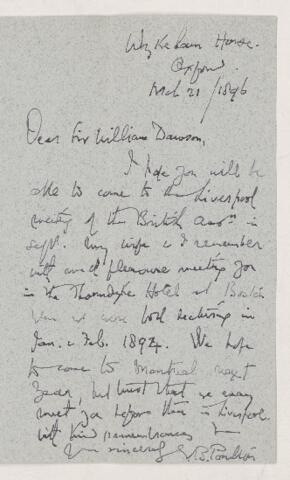 Wykeham House.
Oxford.
March 21/1896
Dear Sir William Dawson,
I hope you will be
able to come to the Liverpool
meeting of the British Assn in
Sept. My wife & I remember
with much pleasure meeting you
in the Thorndyke Hotel at Boston
when we were both lecturing in
Jan. & Feb. 1894. We hope
to come to Montreal next
year, but trust that we may
meet you before then in Liverpool.
With kind remembrances
Yrs sincerely E.B. Poulton